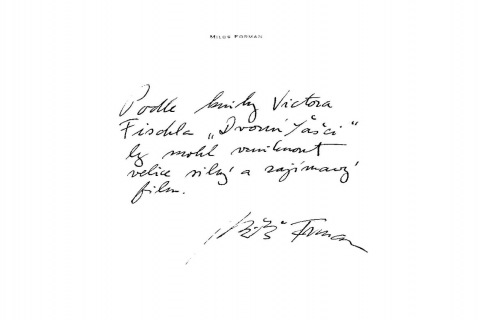 MILOS FORMAN
Podle knihy Victora
Fischla „Dvorní šašci"
by mohl vzniknout
velice silný a zajímavý
film.
Miloš Forman